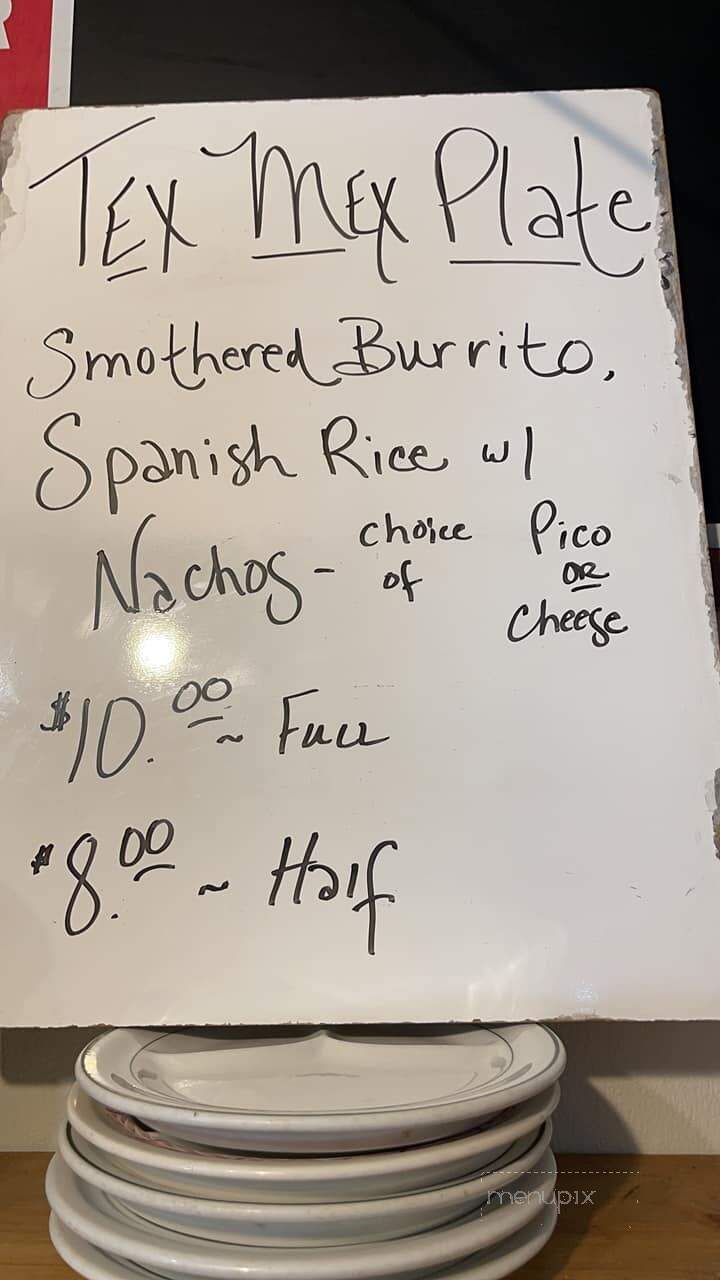 TEX MEX Plate
Smothered Burrito,
Spanish Rice w/
Nachos - choice of Pico OR Cheese
$10.00 ~ Full
$8.00 ~ Half
menupix